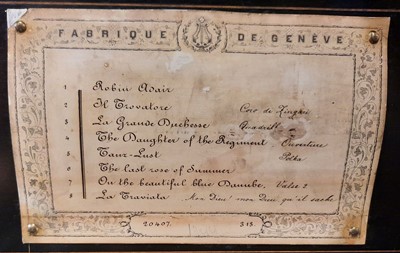 FABRIQUE DE GENÈVE
1 Robin Adair
2 Il Trovatore Coro de Zingari
3 La Grande Duchesse Quadrille
4 The Daughter of the Regiment Ouverture
5 Tanz-Lust Polka
6 The last rose of Summer
7 On the beautiful blue Danube, Valse 2
8 La Traviata Mon Dieu mon Dieu qu'il sache
20407. 313.